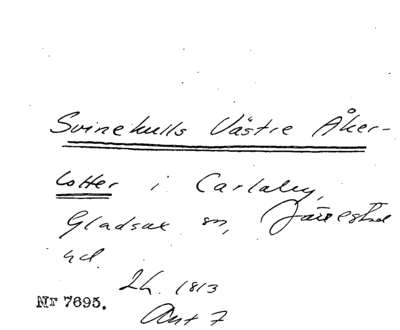 Svinekulls Västre Åker-
lotter i Carlaby,
Gladsax sn, Järrestad
hd.
Lh. 1813
Akt 7
Nr 7695.